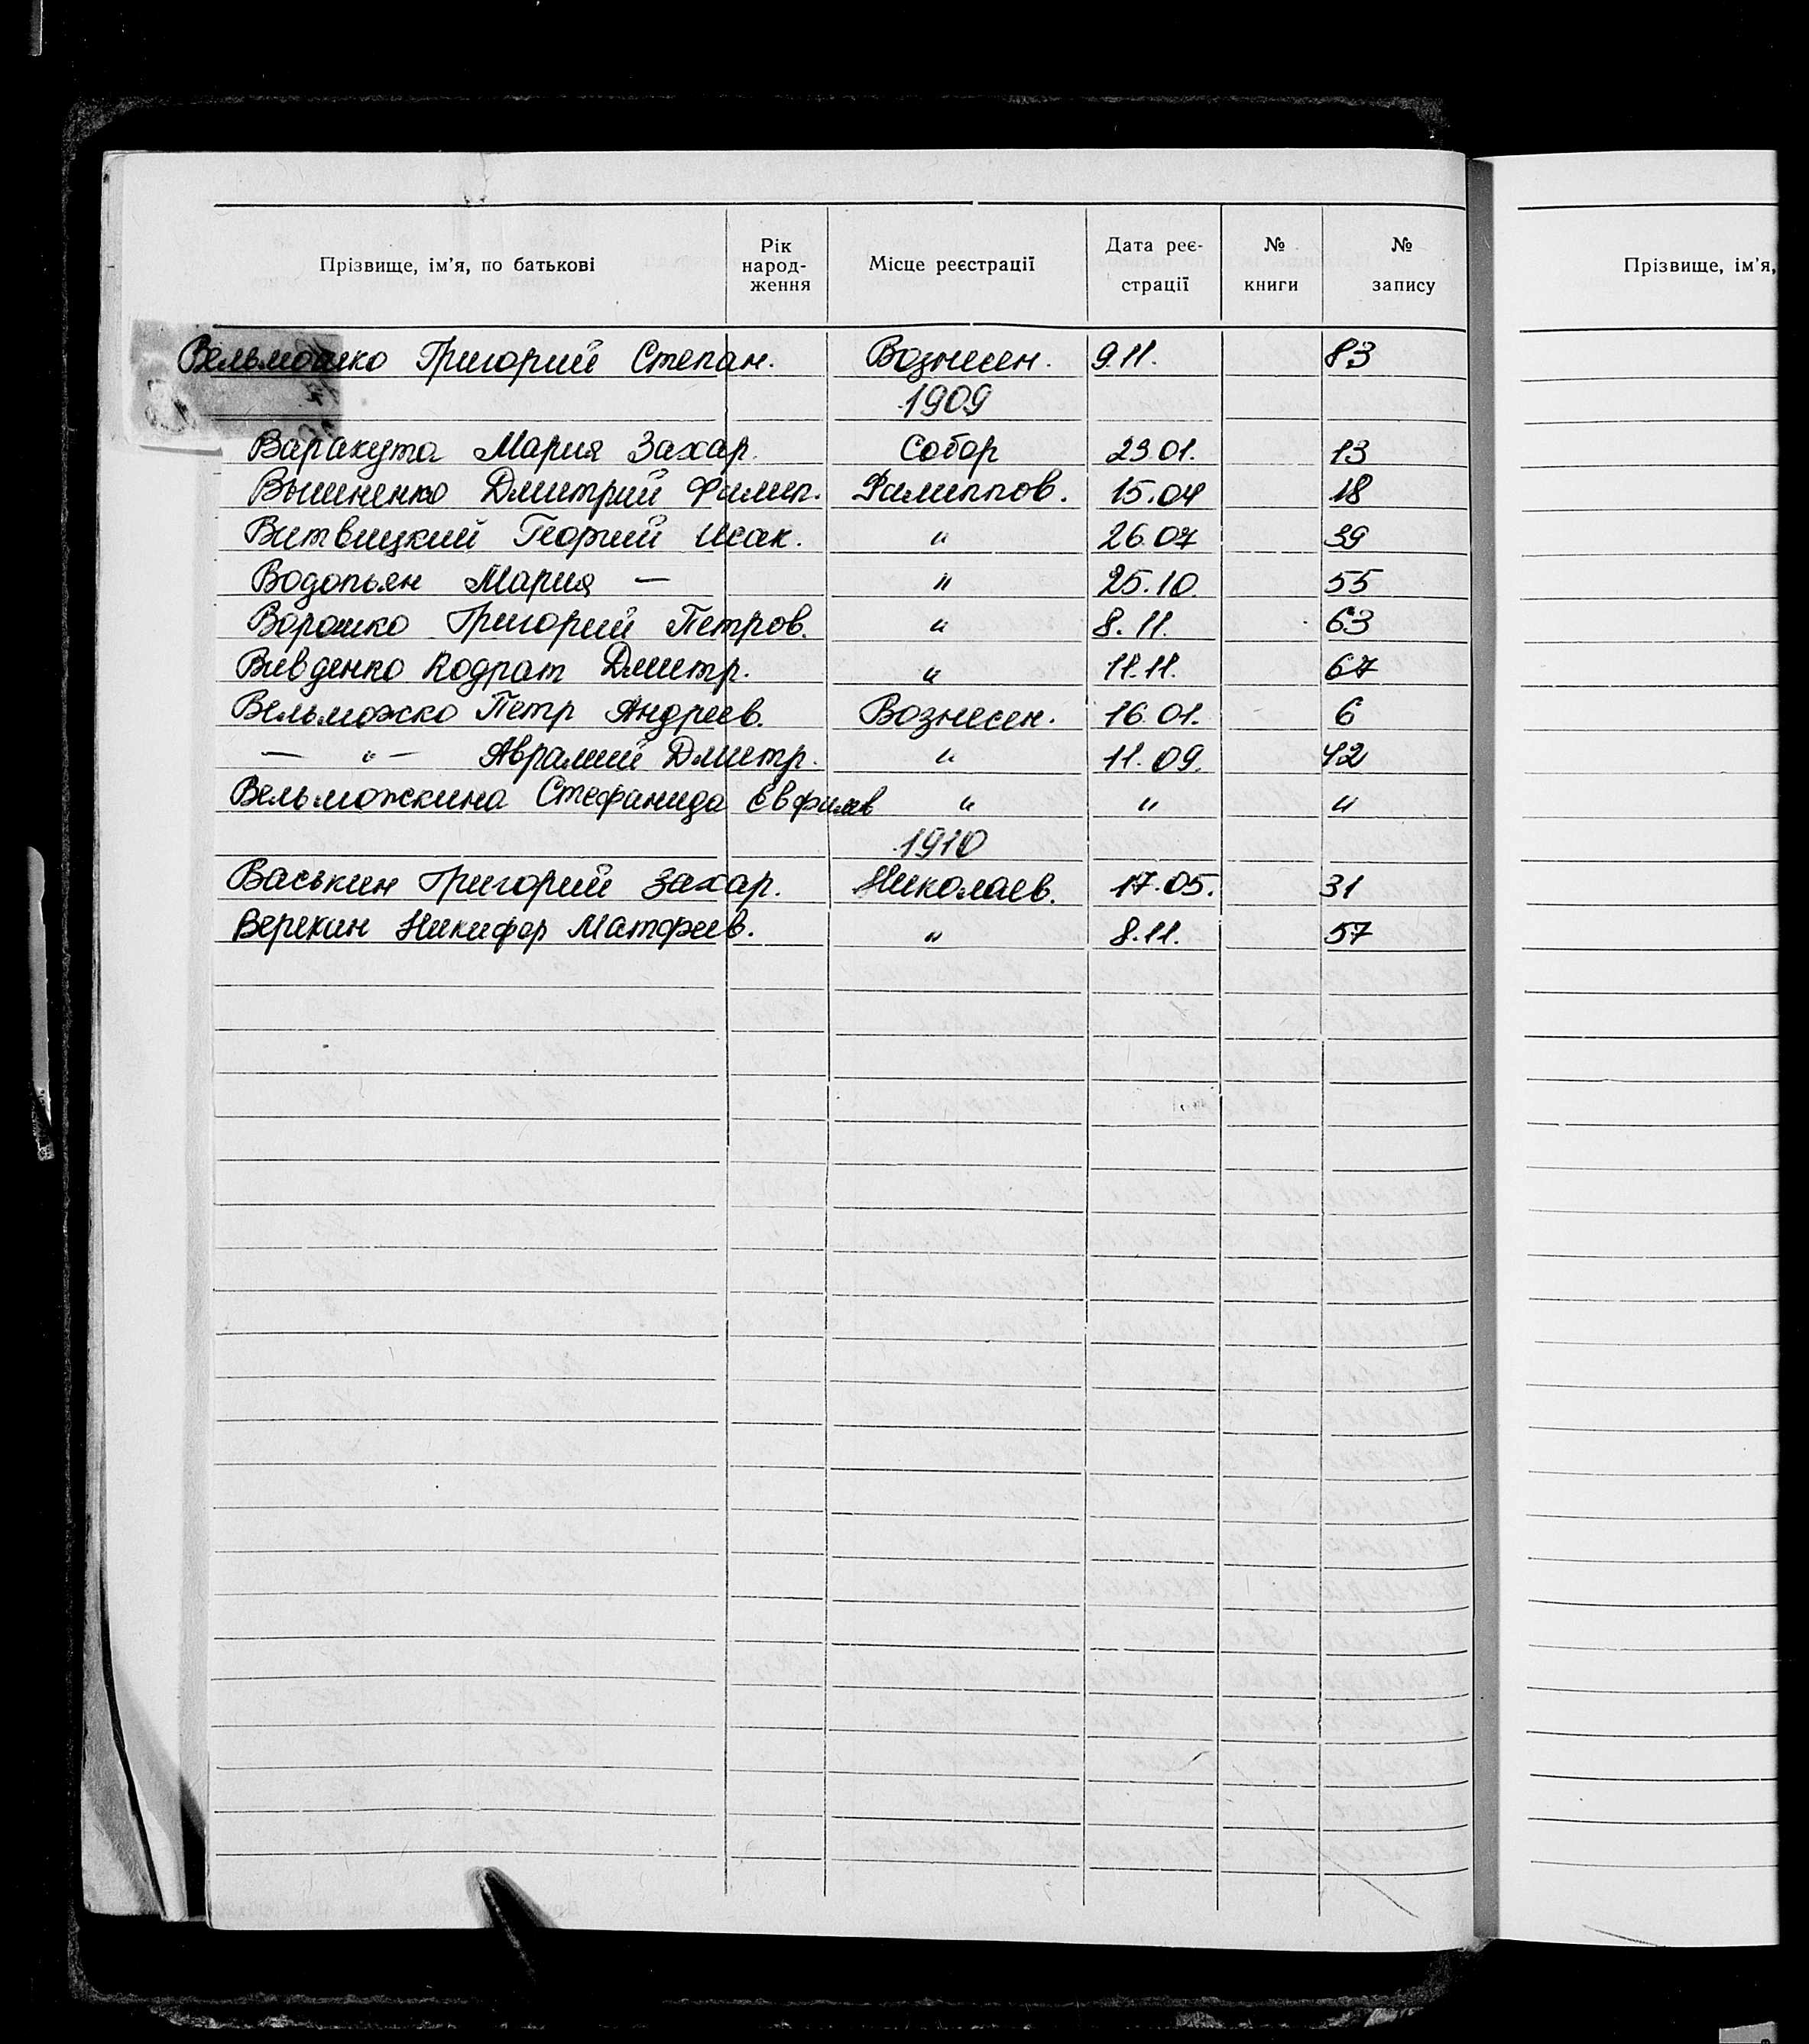 Прізвище, ім’я, по батькові Рік народ- ження Місце реєстрації Дата реє- страції № книги № запису
Прізвище, ім’я,
Вельможко Григорий Степан. Вознесен. 9.11. 83
1909
Варакута Мария Захар. Собор 23.01. 13
Вышненко Дмитрий Филип. Филиппов. 15.04 18
Витвицкий Георгий Исак. " 26.07 39
Водопьян Мария — " 25.10. 55
Ворошко Григорий Петров. " 8.11. 63
Вивденко Кодрат Дмитр. " 11.11. 67
Вельможко Петр Андреев. Вознесен. 16.01. 6
— " — Аврамий Дмитр. " 11.09. 42
Вельможкина Стефанида Евфимв " " "
1910
Васькин Григорий Захар. Николаев. 17.05. 31
Верекин Никифор Матфеев. " 8.11. 57